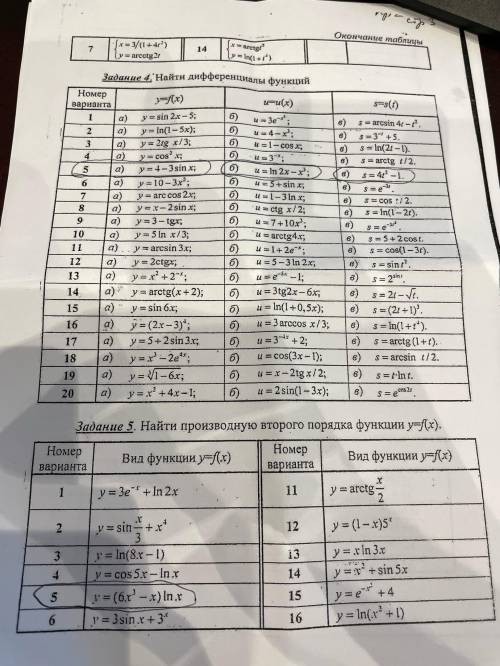 Окончание таблицы
7 { x = 3/(1+4t²) 14 { x = arctgt²
y = arcctg2t y = ln(1+t⁴)
Задание 4. Найти дифференциалы функций
Номер варианта y=f(x) u=u(x) s=s(t)
1 а) y = sin 2x − 5; б) u = 3e⁻ˣ²; в) s = arcsin 4t − t³.
2 а) y = ln(1 − 5x); б) u = 4 − x³; в) s = 3⁻ᵗ + 5.
3 а) y = 2tg x/3; б) u = 1 − cos x; в) s = ln(2t − 1).
4 а) y = cos² x; б) u = 3⁻ˣ; в) s = arctg t/2.
5 а) y = 4 − 3sin x; б) u = ln 2x − x³; в) s = 4t² − 1.
6 а) y = 10 − 3x³; б) u = 5 + sin x; в) s = e⁻³ᵗ.
7 а) y = arc cos 2x; б) u = 1 − 3ln x; в) s = cos t/2.
8 а) y = x − 2sin x; б) u = ctg x/2; в) s = ln(1 − 2t).
9 а) y = 3 − tgx; б) u = 7 + 10x³; в)
10 а) y = 5 ln x/3; б) u = arctg4x; в) s = 5 + 2 cos t.
11 а) y = arcsin 3x; б) u = 1 + 2e⁻ˣ; в) s = cos(1 − 3t).
12 а) y = 2ctgx; б) u = 5 − 3 ln 2x; в) s = sin t³.
13 а) y = x² + 2⁻ˣ; б) в) s = 2ˢⁱⁿᵗ.
14 а) y = arctg(x + 2); б) u = 3tg2x − 6x; в) s = 2t − √t.
15 а) y = sin 6x; б) u = ln(1 + 0,5x); в) s = (2t + 1)³.
16 а) y = (2x − 3)⁴; б) u = 3 arccos x/3; в)
17 а) y = 5 + 2 sin 3x; б) u = 3⁻⁴ˣ + 2; в) s = arctg (1 + t).
18 а) y = x³ − 2e⁴ˣ; б) u = cos(3x − 1); в) s = arcsin t/2.
19 а) б) u = x − 2tg x/2; в) s = t·ln t.
20 а) y = x³ + 4x − 1; б) u = 2 sin(1 − 3x); в)
Задание 5. Найти производную второго порядка функции y=f(x).
Номер варианта Вид функции y=f(x) Номер варианта Вид функции y=f(x)
1 y = 3e⁻ˣ + ln 2x 11 y = arctg x/2
2 y = sin x/3 + x⁴ 12 y = (1 − x)5ˣ
3 y = ln(8x − 1) 13 y = x ln 3x
4 y = cos 5x − ln x 14 y = x² + sin 5x
5 y = (6x³ − x) ln x 15 y = e⁻ˣ² + 4
6 y = 3 sin x + 3ˣ 16 y = ln(x² + 1)